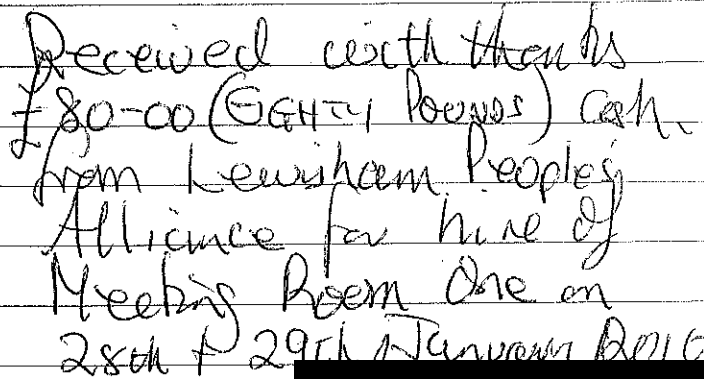 Received with thanks
£80-00 (EIGHTY POUNDS) Cash.
from Lewisham Peoples
Alliance for hire of
Meeting Room One on
28th + 29th January 2010